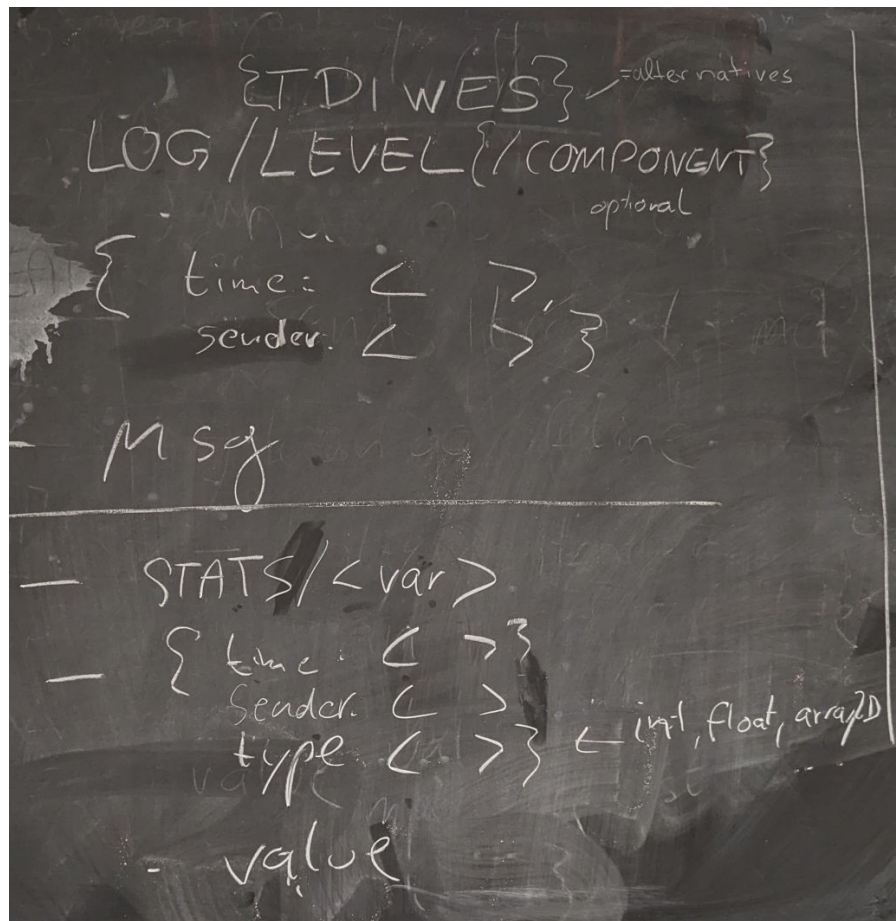 {TDIWES} =alternatives
LOG/LEVEL{/COMPONENT}
optional
- { time: < >,
sender: < > }
- Msg
- STATS/<var>
- { time: < >}
Sender: < >
type < >} ← int, float, array2D
- value